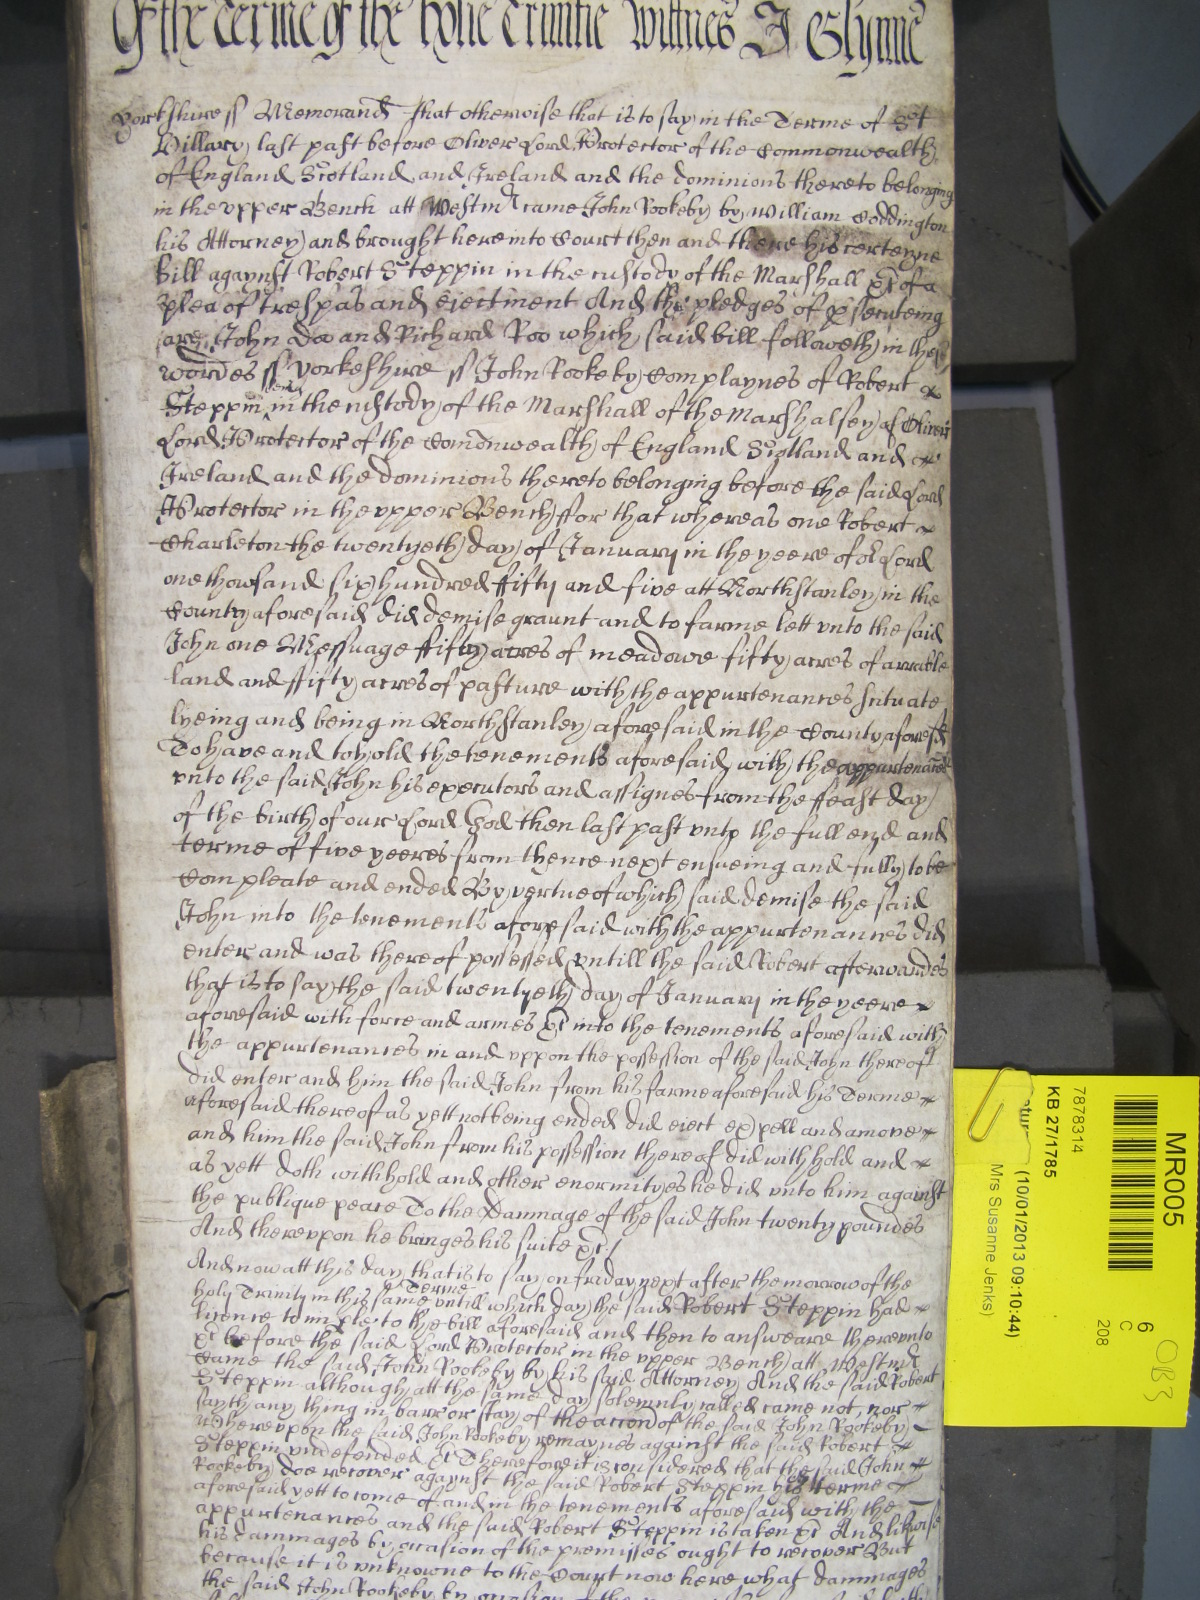 Of the Terme of the holie Trinitie Wittnes J Glynne
Yorkshire ss Memorand That otherwise that is to say in the Terme of St
Hillary last past before Oliver Lord Protector of the Commonwealth
of England Scotland and Ireland and the dominions thereto belonging
in the vpper Bench att Westm came John Rookeby by William Coddington
his Attorney and brought here into Court then and there his certeyne
bill agaynst Robert Steppin in the custody of the Marshall &c of a
plea of trespas and eiectment And the pledges of psecuteing
are John Doo and Richard Roo which said bill followeth in these
wordes ss Yorkeshire ss John Rookeby Complaynes of Robert
Steppin in the custody of the Marshall of the Marshalsey of Oliver
Lord Protector of the Comonwealth of England Scotland and
Ireland and the dominions thereto belonging before the said Lord
Protector in the vpper Bench ffor that whereas one Robert
Charleton the twentyeth day of January in the yeere of or Lord
one thowsand six hundred ffifty and five att Northstanley in the
County aforesaid did demise graunt and to farme lett vnto the said
John one Messuage ffifty acres of meadowe fifty acres of arrable
land and ffifty acres of pasture with the appurtenances scituate
lyeing and being in Northstanley aforesaid in the County aforesd
To have and to hold the tenements aforesaid with the appurtenances
vnto the said John his executors and assignes from the ffeast day
of the birth of our Lord God then last past vnto the full end and
terme of five yeeres from thence next ensueing and fully to be
Compleate and ended By vertue of which said demise the said
John into the tenements aforesaid with the appurtenances did
enter and was thereof possessed vntill the said Robert afterwardes
that is to say the said twentyeth day of January in the yeere
aforesaid with force and armes &c into the tenements aforesaid with
the appurtenances in and vppon the possession of the said John thereof
did enter and him the said John from his farme aforesaid his Terme
aforesaid thereof as yett not being ended did eiect expell and amove
and him the said John from his possession thereof did withhold and
as yett doth withhold and other enormityes he did vnto him against
the publique peace To the Dammage of the said John twenty poundes
And therevpon he bringes his suite &c
And now att this day that is to say on friday next after the morrow of the
holy Trinity in this same Terme vntill which day the said Robert Steppin had
licence to imple to the bill aforesaid and then to answeare therevnto
&c before the said Lord Protector in the vpper Bench att Westm
Came the said John Rookeby by his said Attorney And the said Robert
Steppin although att the same day solemnly called came not, nor
sayth any thing in barr or stay of the accon of the said John Rookeby
Wherevpon the said John Rookeby remaynes against the said Robert
Steppin vndefended &c Therefore it is considered that the said John
Rookeby doe recover agaynst the said Robert Steppin his terme
aforesaid yett to come of and in the tenements aforesaid with the
appurtenances and the said Robert Steppin is taken &c And likwise
his dammages by occasion of the premisses ought to recover But
because it is vnknowne to the Court now here what dammages
the said John Rookeby by occasion of the
MR005
7878314
KB 27/1785
(10/01/2013 09:10:44)
Mrs Susanne Jenks)
6
C
208